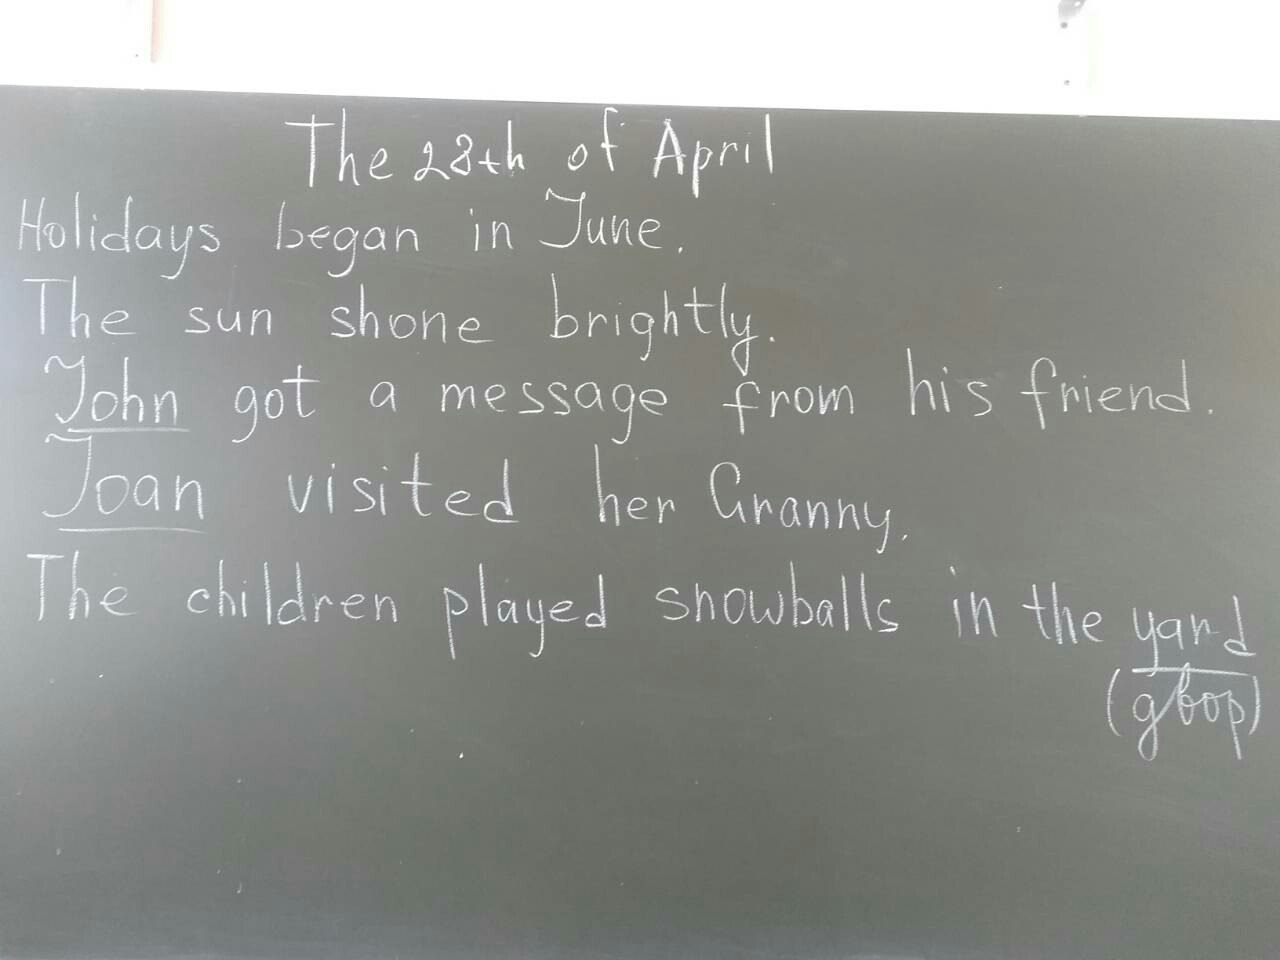 The 28th of April
Holidays began in June.
The sun shone brightly.
John got a message from his friend.
Joan visited her Granny.
The children played snowballs in the yard
(двор)